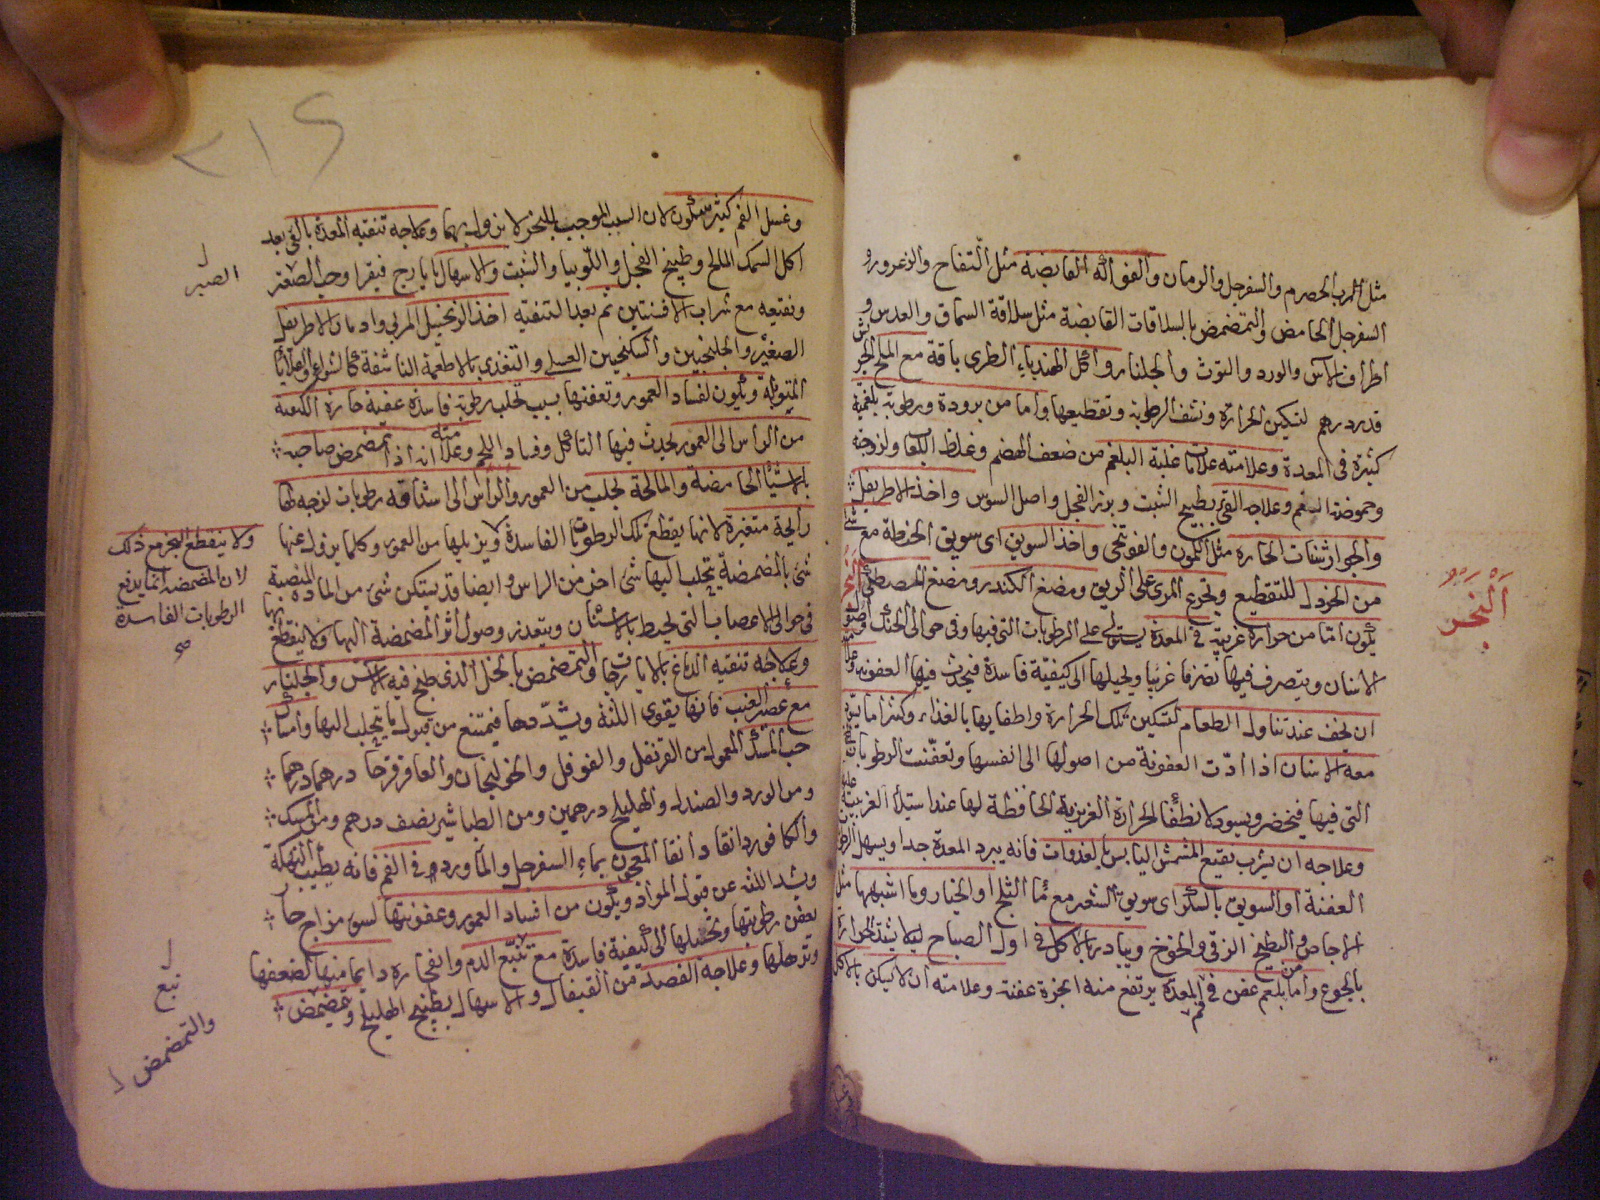 مثل المرب الحصرم والسفرجل والرمان والفواكه القابضة مثل التفاح والزعرور و
السفرجل الحامض والتمضمض بالسلاقات القابضة مثل سلاقة السماق والعدس و
اطراف الاس والورد والتوث والجلنار واكل الهندباء الطرى باقة مع الملح
قدر درهم لتسكين الحرارة ونشف الرطوبة وتقطيعها واما من برودة ورطوبة بلغمية
كثيرة فى المعدة وعلامته علامات غلبة البلغم من ضعف الهضم وغلظ اللعاب ولزوجته
وحموضة الفم وعلاجه القئ بطبيخ الشبت وبزر الفجل واصل السوس واخذ الاطريفل
والجوارشنات الحارة مثل الكمون والفوتنجى واخذ السويق اى سويق الحنطة مع شئ
من الخردل للتقطيع وتجرع المرى على الريق ومضغ الكندر ومضغ المصطكى البخر
يكون اما من حرارة غريبة فى المعدة يستولى على الرطوبات التى فيها وفى حوالى الحنك
الاسنان ويتصرف فيها تصرفا غريبا ويحيلها الى كيفية فاسدة فيحدث فيها العفونة
ان يخف عند تناول الطعام لتسكين تلك الحرارة واطفايها بالغذاء وكثيرا ما
معه الاسنان اذا ادت العفونة من اصولها الى انفسها وتعفنت الرطوبات
التى فيها فيخضر ويسود لانطفا الحرارة الغريزية الحافظة لها عند استيلاء الغريبة
وعلاجه ان يشرب نقيع المشمش اليابس بالغدوات فانه يبرد المعدة جدا ويسهل
العفنة او السويق بالسكر اى سويق الشعير مع ماء الثلج او الخيار وما اشبهها مثل
الاجاص والبطيخ الزقى والخوخ ويبادر بالاكل فى اول الصباح ليلا يشتد الحرارة
بالجوع واما من بلغم عفن فى فم المعدة يرتفع منه ابخرة عفنة وعلامته ان لا يسكن بالاكل
البخر
وغسل الفم كثير سكون لان السبب الموجب للبخر لا يزول بهما وعلاجه تنقية المعدة بالقئ بعد
اكل السمك المالح وطبيخ الفجل واللوبيا والشبت والاسهال بايارج فيقرا وحب الصبر
الصبر
ونقيعه مع شراب الافسنتين ثم بعد التنقية اخذ الزنجبيل المربى وادمان الاطريفل
الصغير والجلنجبين والسكنجبين العسلى والتغذى بالاطعمة الناشفة كالشواء والقلايا
المتوبلة ويكون لفساد العمور وتعفنها بسبب تحلب رطوبة فاسدة عفنة حارة الكيفية
من الراس الى العمور يحدث فيها التاكل وفساد اللحم وعلامته انه اذا تمضمض صاحبه
بالاشياء الحامضة والمالحة تحلب من العمور والراس الى شدقه رطوبات لزجة لها
رايحة متغيرة لانها يقطع تلك الرطوبات الفاسدة ويزيلها من العمور وكلما يزول عنها
شئ بالمضمضة يتحلب اليها شئ اخر من الراس وايضا قد يستكن شئ من المادة المنصبة
فى حوالى الاعصاب التى تحيط بالاسنان ويتعذر وصول اثر المضمضة اليها ولا ينقطع
ولا ينقطع البخر مع ذلك
لان المضمضة انما يدفع
الرطوبات الفاسدة
صح
وعلاجه تنقية الدماغ بالايارجات والتمضمض بالخل الذى طبخ فيه الاس والجلنار
مع عصير العنب فانها يقوى اللثة ويشد لحمها فيمتنع من قبول ما يتحلب اليها وامساك
حب المسك المعمول من القرنفل والفوفل والخولنجان والعاقرقرحا درهما درهما
ومن الورد والصندل والهليلج درهمين ومن الطباشير نصف درهم ومن المسك
والكافور دانقا دانقا المعجون بماء السفرجل والماورد فى الفم فانه يطيب النكهة
ويشد اللثة عن قبول المواد ويكون من افساد العمور وعفونتها لسوء مزاج حار
يعفن رطوبتها ويحيلها الى كيفية فاسدة مع تتبع الدم وانفجاره دايما منها لضعفها
نبع
وترهلها وعلاجه الفصد من القيفال والاسهال بطبيخ الهليلج وتمضمض
والتمضمض